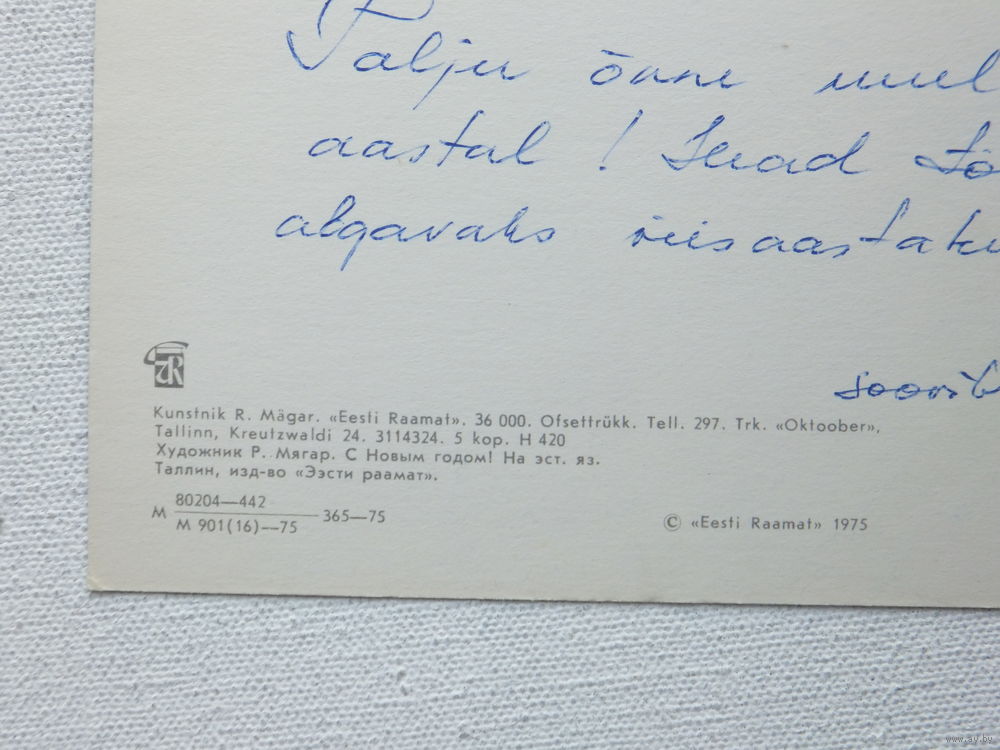 Palju õnne uuel
aastal! Head tö
algavaks viisaastaku
soovib
Kunstnik R. Mägar. «Eesti Raamat». 36 000. Ofsettrükk. Tell. 297. Trk. «Oktoober»,
Tallinn, Kreutzwaldi 24. 3114324. 5 kop. H 420
Художник Р. Мягар. С Новым годом! На эст. яз.
Таллин, изд-во «Ээсти раамат».
М 80204—442 / М 901(16)—75 365—75
© «Eesti Raamat» 1975
www.ay.by